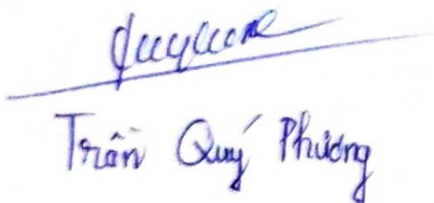 Trần Quý Phương